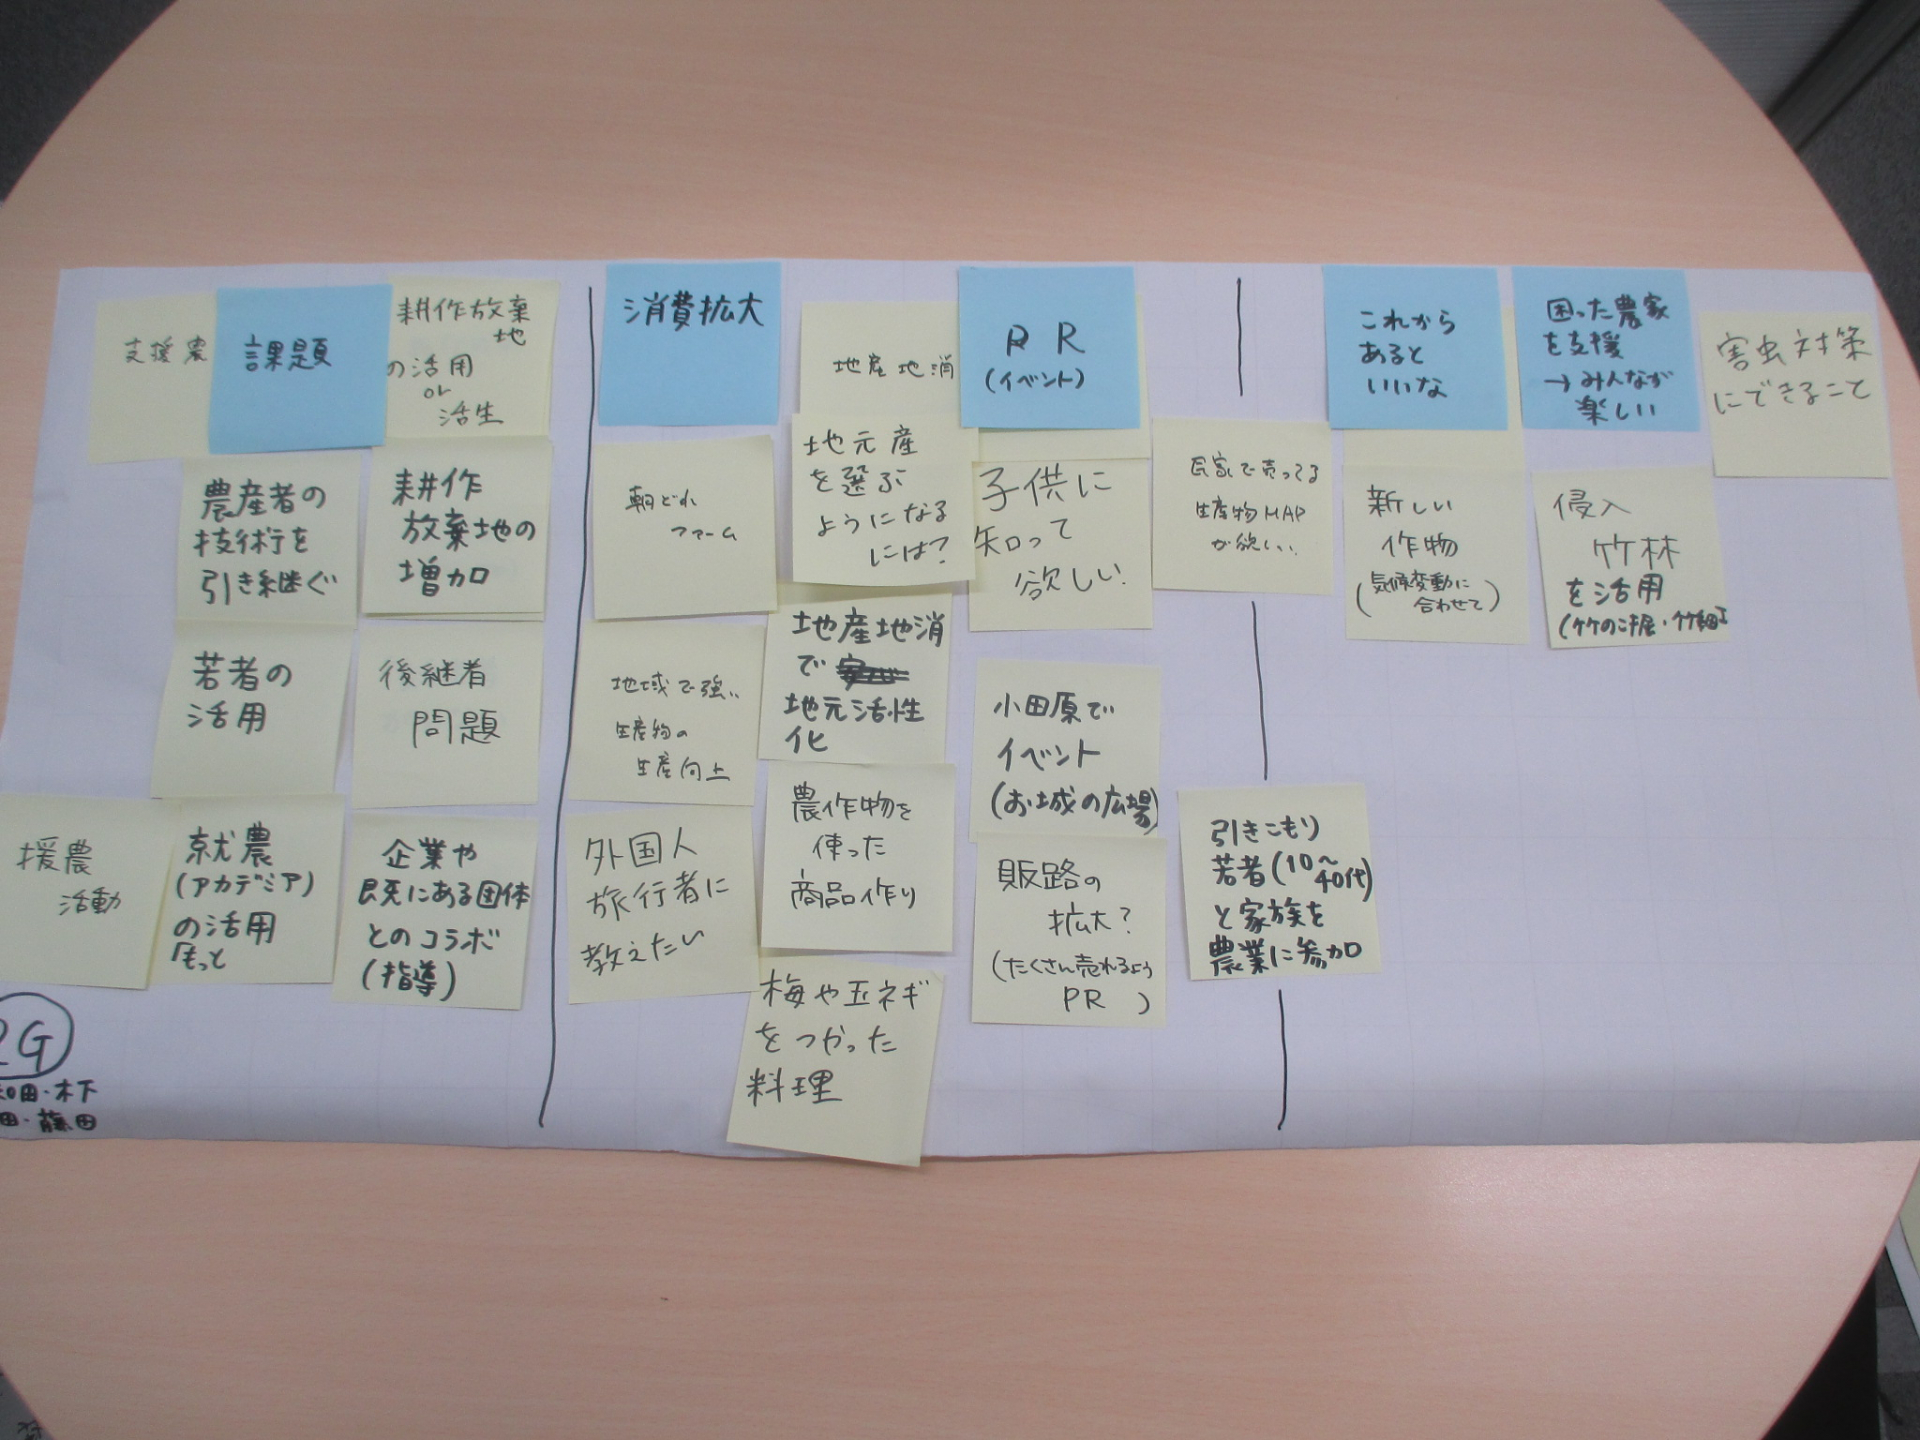 支援農
課題
耕作放棄
地
の活用
or
活生
農産者の
技術を
引き継ぐ
耕作
放棄地の
増加
若者の
活用
後継者
問題
援農
活動
就農
(アカデミア)
の活用
もっと
企業や
既にある団体
とのコラボ
(指導)
2G
田・木下
田・藤田
消費拡大
地産地消
PR
(イベント)
朝どれ
ファーム
地元産
を選ぶ
ようになる
には?
子供に
知って
欲しい
地域で強い
生産物の
生産向上
地産地消
で
地元活性
化
小田原で
イベント
(お城の広場)
外国人
旅行者に
教えたい
農作物を
使った
商品作り
販路の
拡大?
(たくさん売れるよう
PR )
梅や玉ネギ
をつかった
料理
で売ってる
生産物MAP
が欲しい
引きこもり
若者(10〜
40代)
と家族を
農業に参加
これから
あると
いいな
困った農家
を支援
→みんなが
楽しい
害虫対策
にできること
新しい
作物
(気候変動に
合わせて)
侵入
竹林
を活用